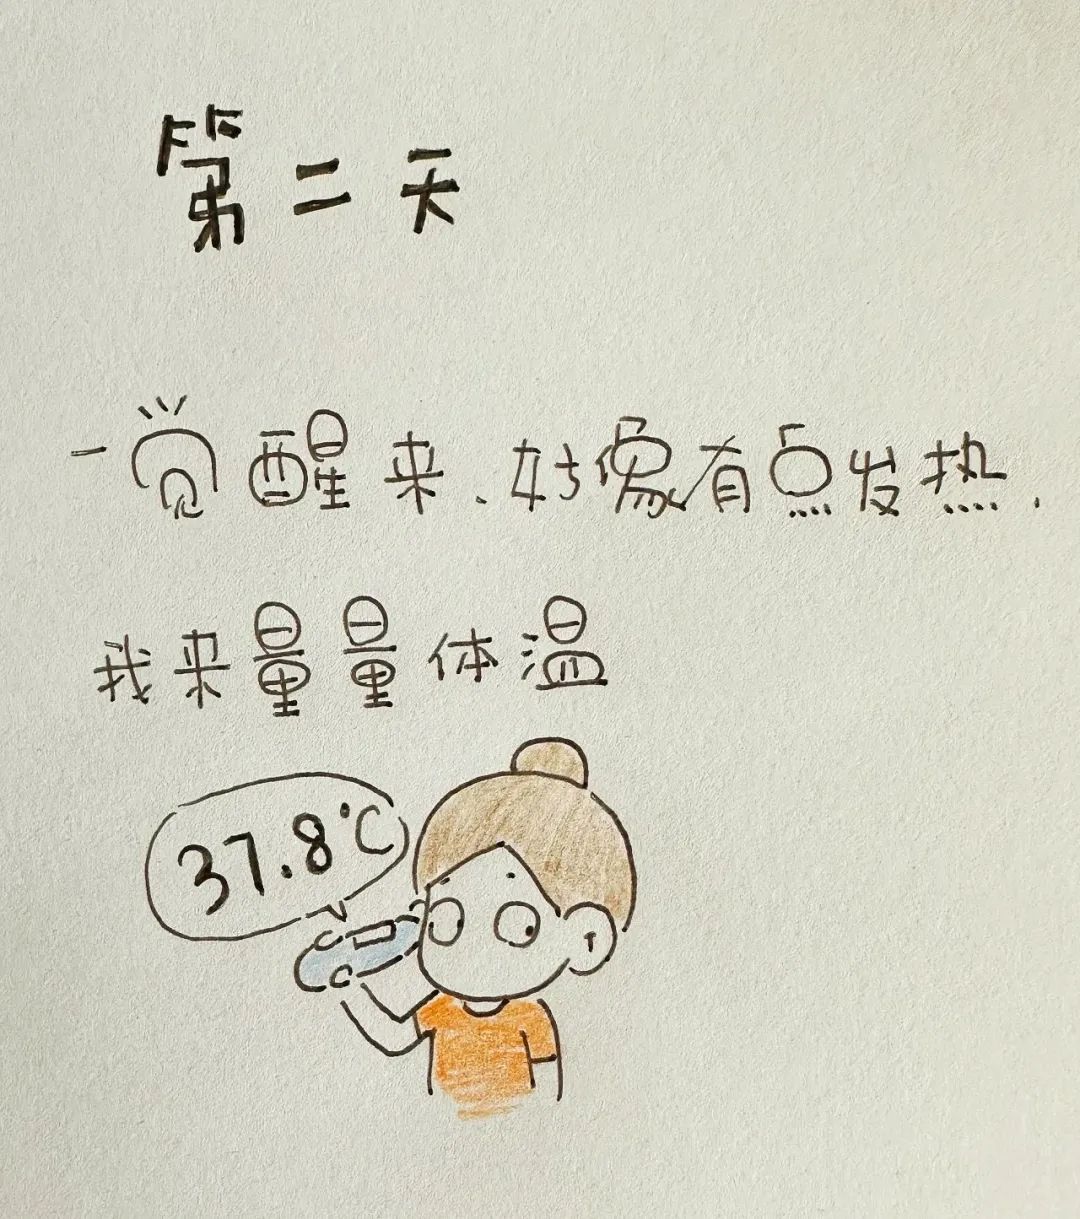 第二天
一觉醒来、好像有点发热.
我来量量体温
37.8℃